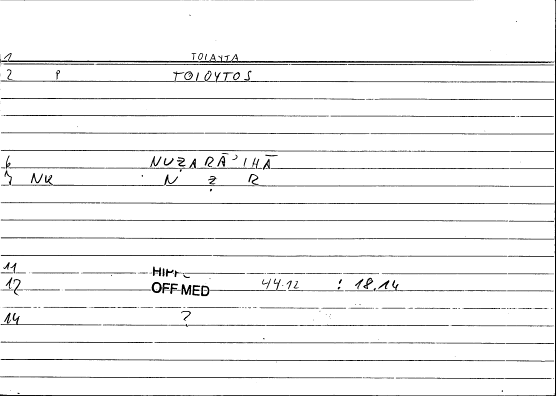 1 TOIAYTA
2 P TOIOYTOS
6 NUẒARĀ'IHĀ
7 NK N Ẓ R
11
12 OFF MED 44.12 : 18.14
14 ?